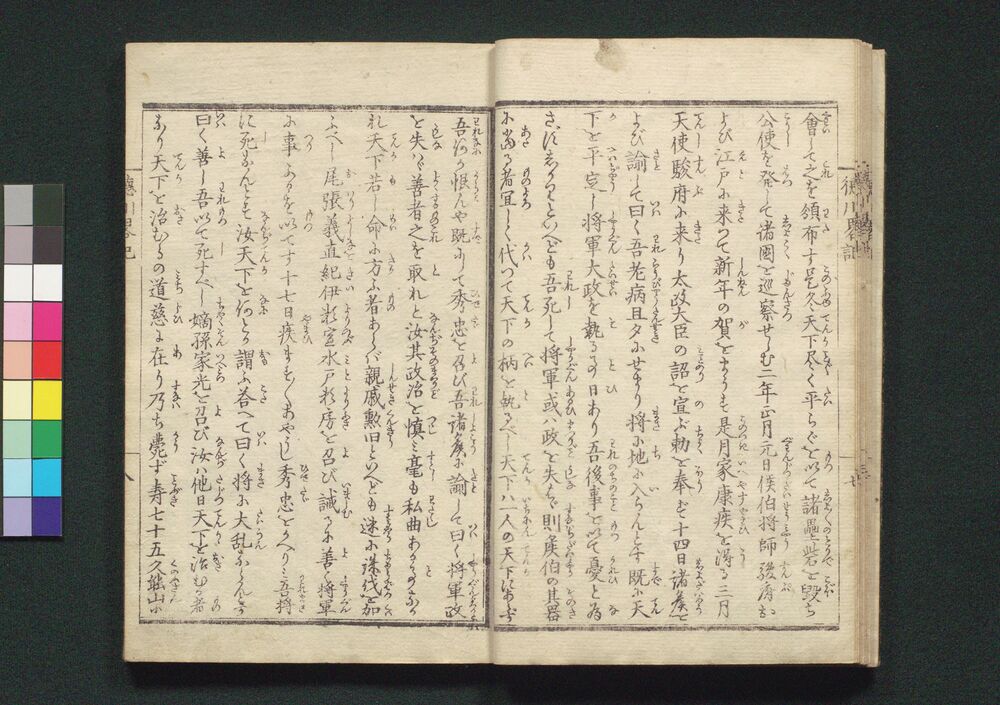 會して之を領布す是久天下尽く平らぐを以て諸壘砦を毀ち
公使を発して諸國を巡察せしむ二年正月元日侯伯将師駿府お
よび江戸に来つて新年の賀をまうす是月家康疾を得る三月
天使駿府に来り太政大臣の詔を宣ぶ勅を奉ず十四日諸侯を
よび諭して曰く吾老病且夕にせまり将に地に入らんとす既に天
下を平定し将軍大政を執るの日あり吾後事を以て憂と為
さず しかりといへども吾死して将軍或ハ政を失ハバ則侯伯の其器
に当る者宜しく代つて天下の柄を執るべし天下ハ一人の天下にあらず
吾何ぞ恨んや既にして秀忠を召び吾諸侯に諭して曰く将軍政
を失ハバ善者之を取れと汝其政治を慎ミ毫も私曲あるなかれ
れ天下若し命に方ふ者あらバ親戚勲旧といへども速に誅伐を加
ふべし尾張義直紀伊頼宣水戸頼房を召び誡るに善く将軍
に事ふるを以てす十七日疾ますますあやうし秀忠をかへりミ吾将
に死なんとす汝天下を何とか謂ふ答へて曰く将に大乱ならんとす
曰く善し吾以て死すべし嫡孫家光を召び汝ハ他日天下を治むる者
なり天下を治むるの道慈に在り乃ち薨ず寿七十五久能山に
徳川畧記
八